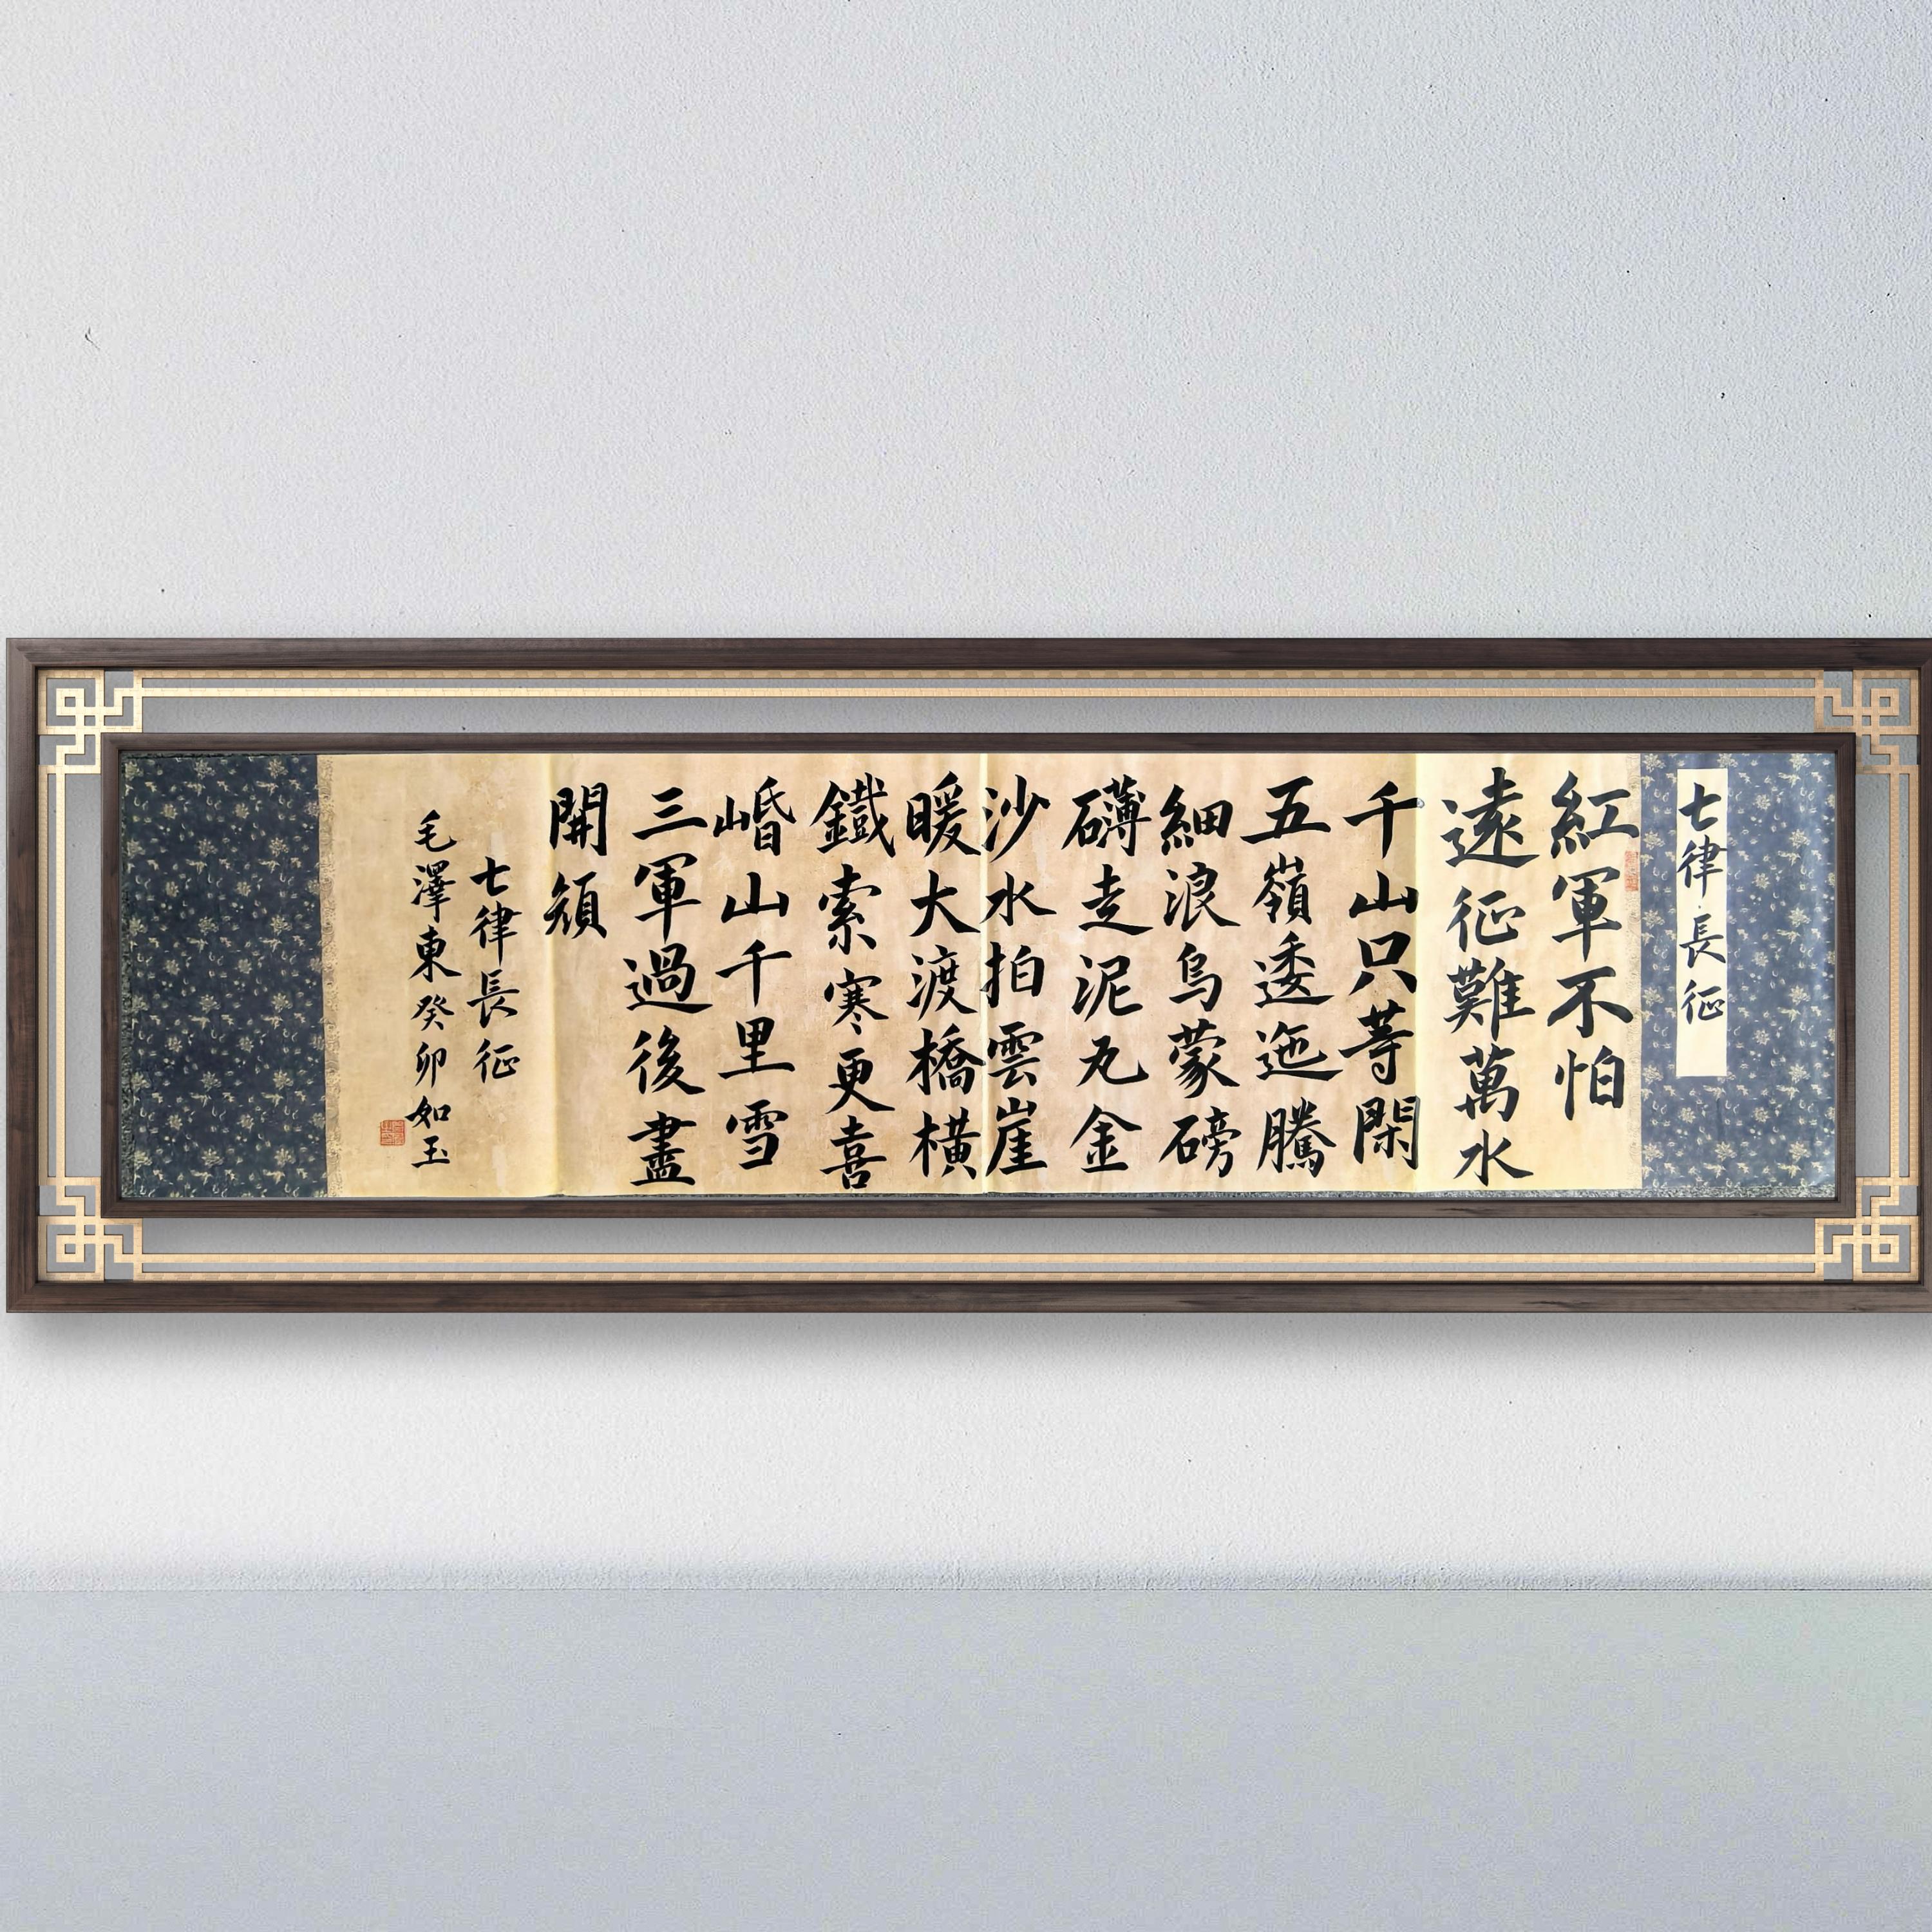 七律·長征
紅軍不怕
遠征難萬水
千山只等閑
五嶺逶迤騰
細浪烏蒙磅
礴走泥丸金
沙水拍雲崖
暖大渡橋橫
鐵索寒更喜
崏山千里雪
三軍過後盡
開顏
七律長征
毛澤東癸卯如玉